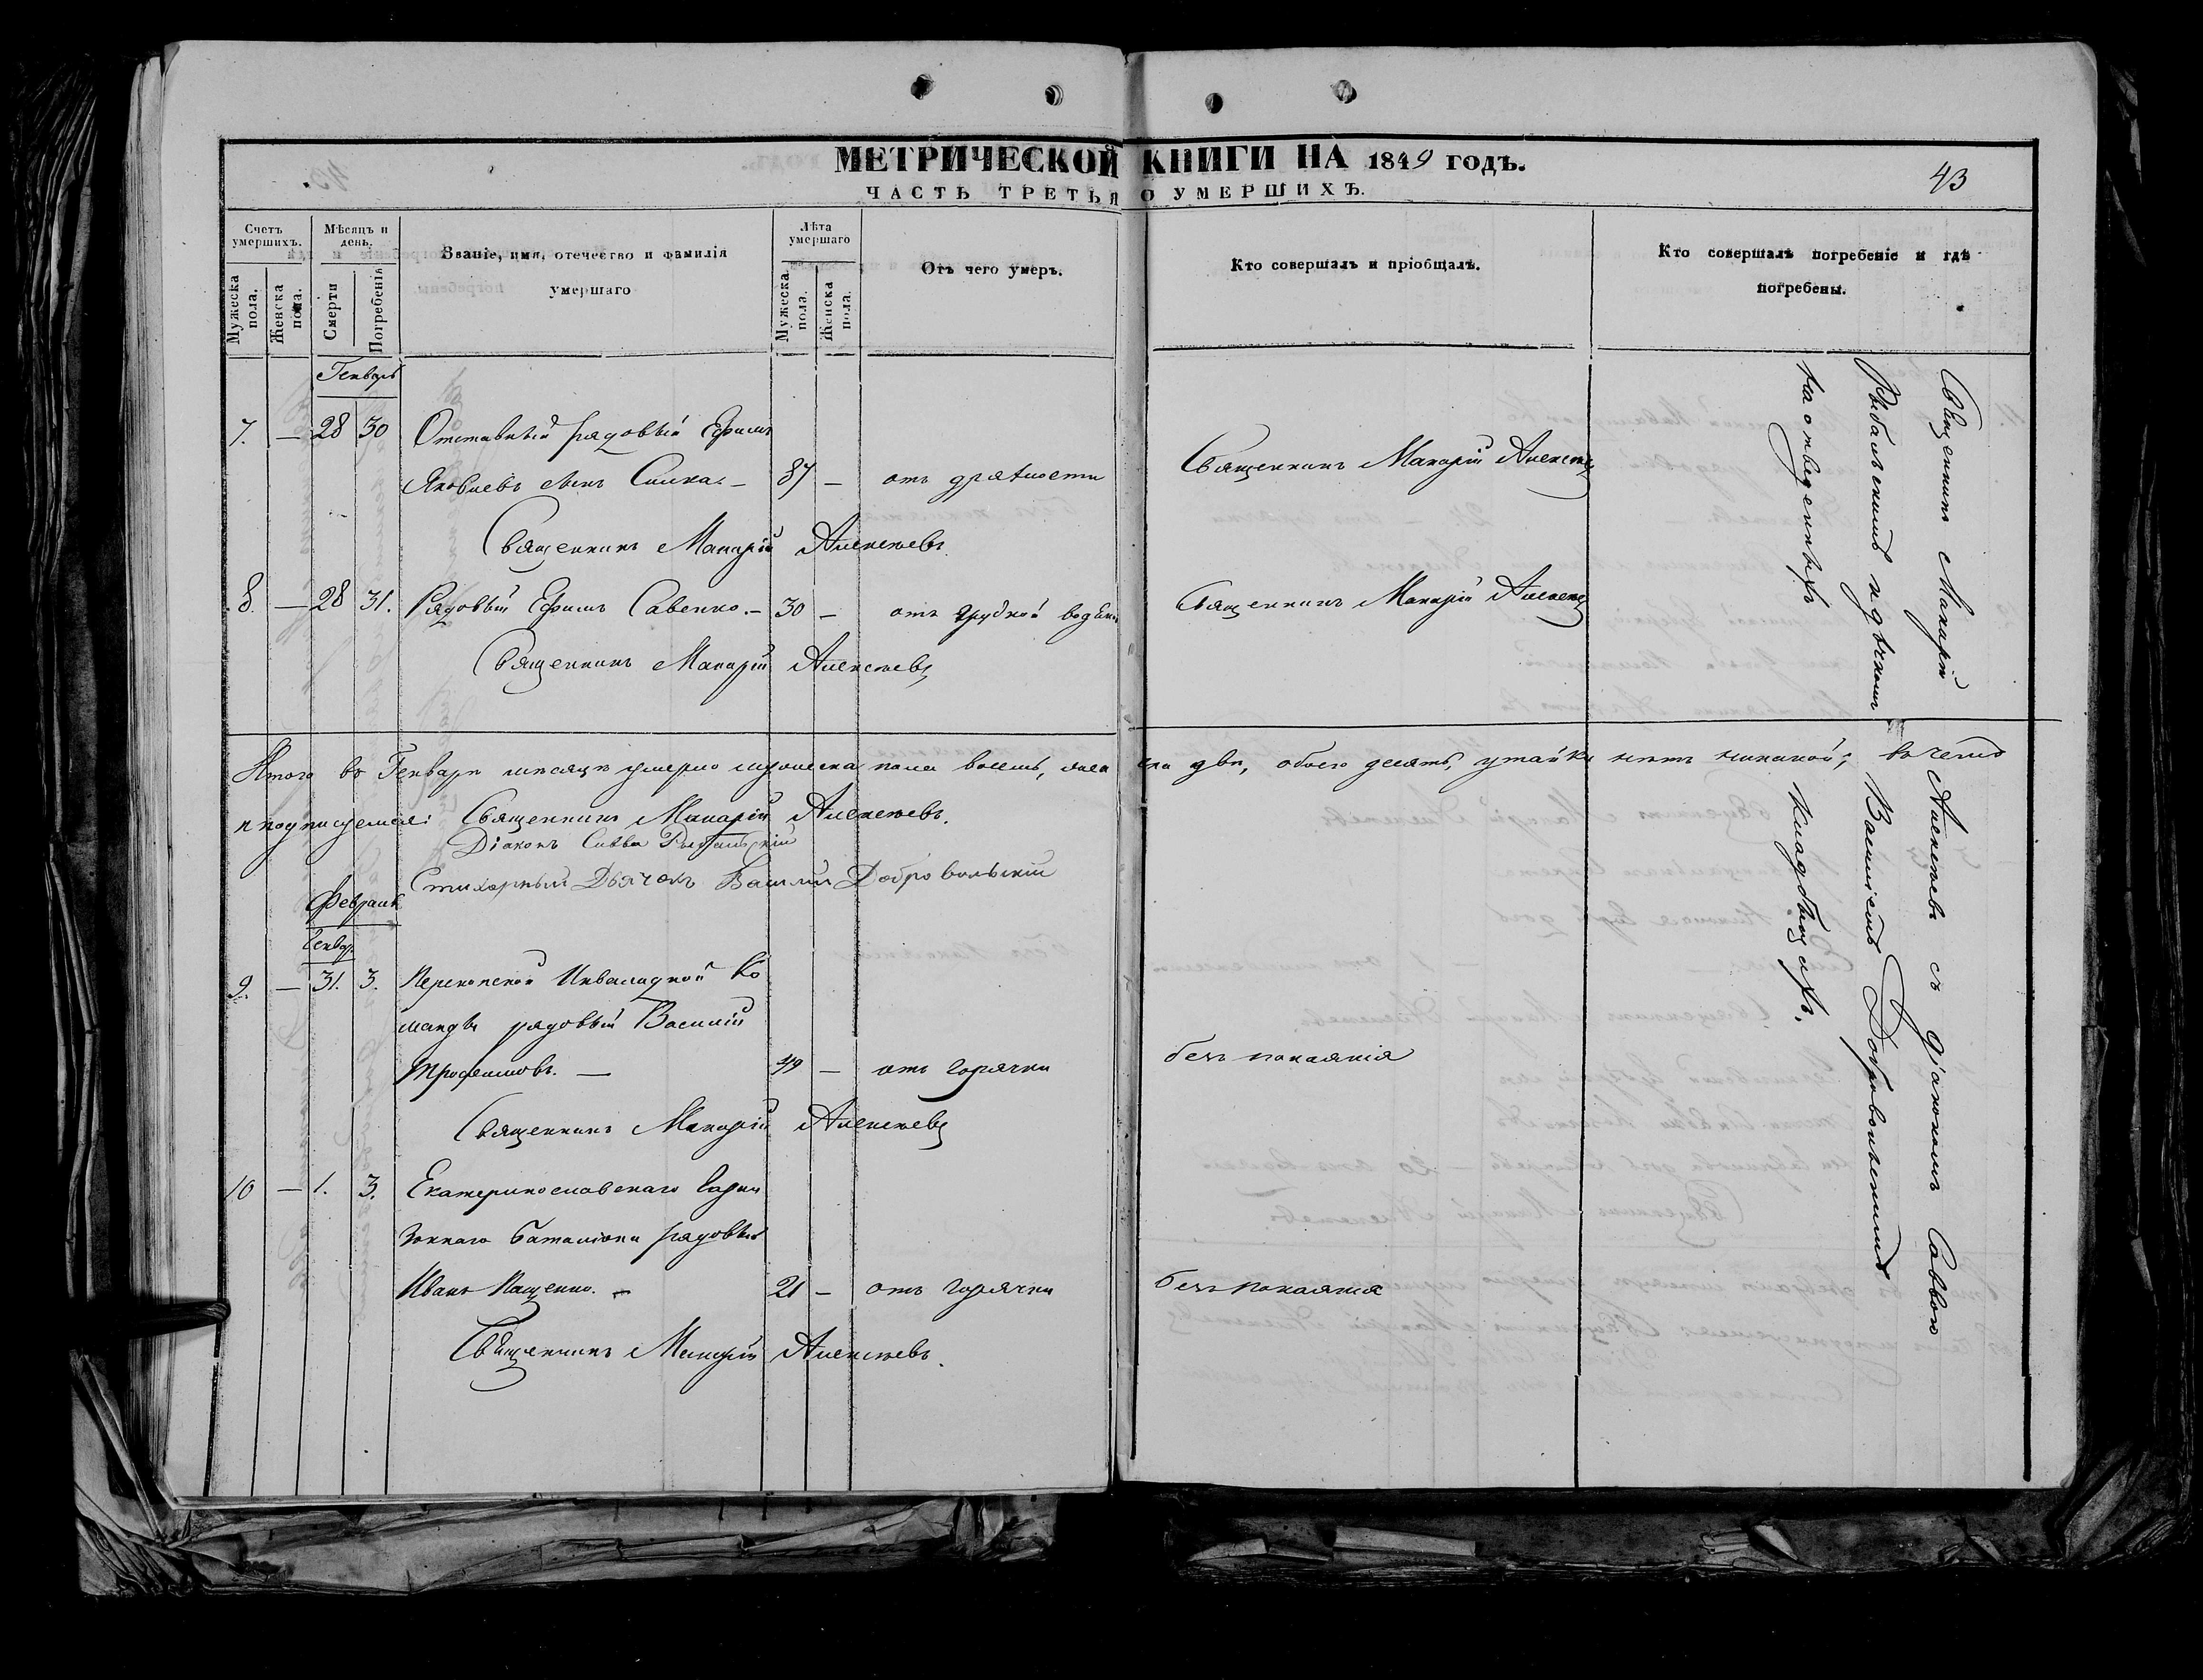 МЕТРИЧЕСКОЙ КНИГИ НА 1849 ГОДЪ.
ЧАСТЬ ТРЕТЬЯ О УМЕРШИХЪ.
43
Счетъ умершихъ.
Мужеска пола.
Женска пола.
Мѣсяцъ и день.
Смерти
Погребенія
Званіе, имя, отечество и фамилія
умершаго
Лѣта умершаго
Мужеска пола.
Женска пола.
Отъ чего умеръ.
Кто совершалъ и пріобщалъ.
Кто совершалъ погребеніе и гдѣ
погребены.
Генварь
7. — 28 30 Отставный рядовый Ефимъ
Яковлевъ сынъ Сичка. — 87 — отъ дряхлости Священникъ Макарій Алексѣевъ
Священникъ Макарій Алексѣевъ.
8. — 28 31. Рядовый Ефимъ Савенко. — 30 — отъ грудной водян Священникъ Макарій Алексѣевъ
Священникъ Макарій Алексѣевъ
Итого въ Генварѣ мѣсяцѣ умерло мужеска пола восемь, женска два, обоего десять, утайки нѣтъ никакой; въ чемъ
и подписуемся: Священникъ Макарій Алексѣевъ.
Діаконъ Савва Рыбальскій
Стихарный Дьячокъ Василій Добровольскій
Февраль
Генвар.
9. — 31. 3. Перекопской Инвалидной Ко
манды рядовый Василій
Трофимовъ. — 49 — отъ горячки безъ покаянія
Священникъ Макарій Алексѣевъ
10 — 1. 3. Екатеринославскаго Гарни
зоннаго Баталіона рядовый
Иванъ Пащенко. — 21 — отъ горячки безъ покаянія
Священникъ Макарій Алексѣевъ.
Священникъ Макарій Алексѣевъ съ діакономъ Саввою
Рыбальскимъ и дьячкомъ Василіемъ Добровольскимъ
на отведенныхъ кладбищахъ.